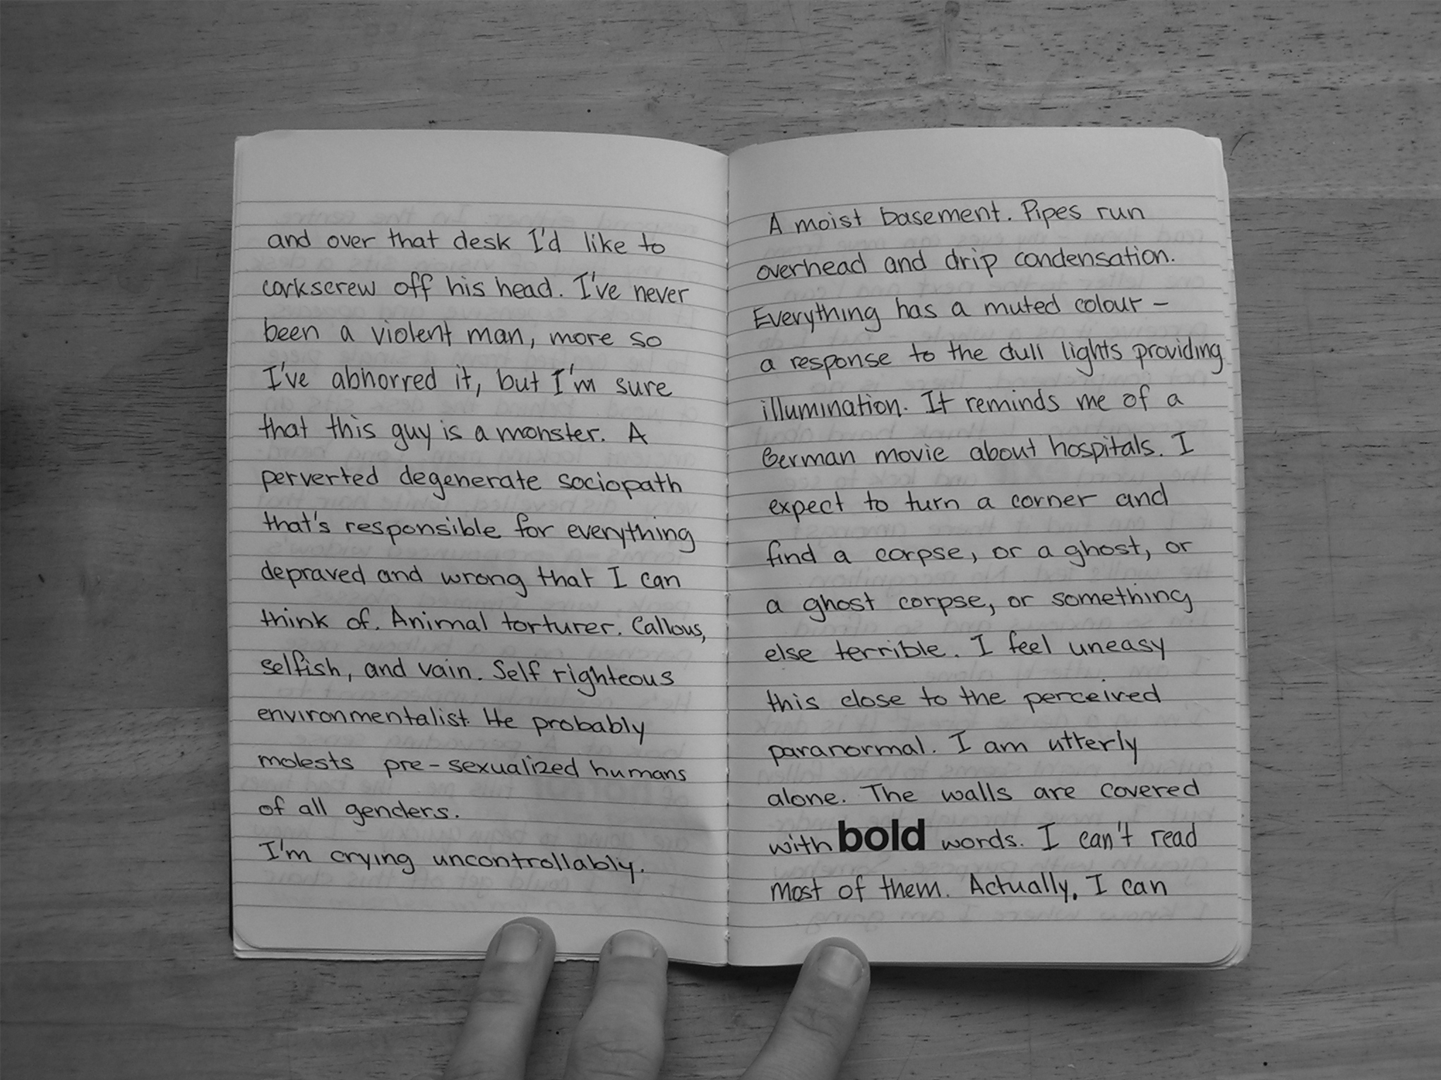 and over that desk I'd like to
corkscrew off his head. I've never
been a violent man, more so
I've abhorred it, but I'm sure
that this guy is a monster. A
perverted degenerate sociopath
that's responsible for everything
depraved and wrong that I can
think of. Animal torturer. Callous,
selfish, and vain. Self righteous
environmentalist. He probably
molests pre-sexualized humans
of all genders.
I'm crying uncontrollably.
A moist basement. Pipes run
overhead and drip condensation.
Everything has a muted colour –
a response to the dull lights providing
illumination. It reminds me of a
German movie about hospitals. I
expect to turn a corner and
find a corpse, or a ghost, or
a ghost corpse, or something
else terrible. I feel uneasy
this close to the perceived
paranormal. I am utterly
alone. The walls are covered
with bold words. I can't read
most of them. Actually, I can